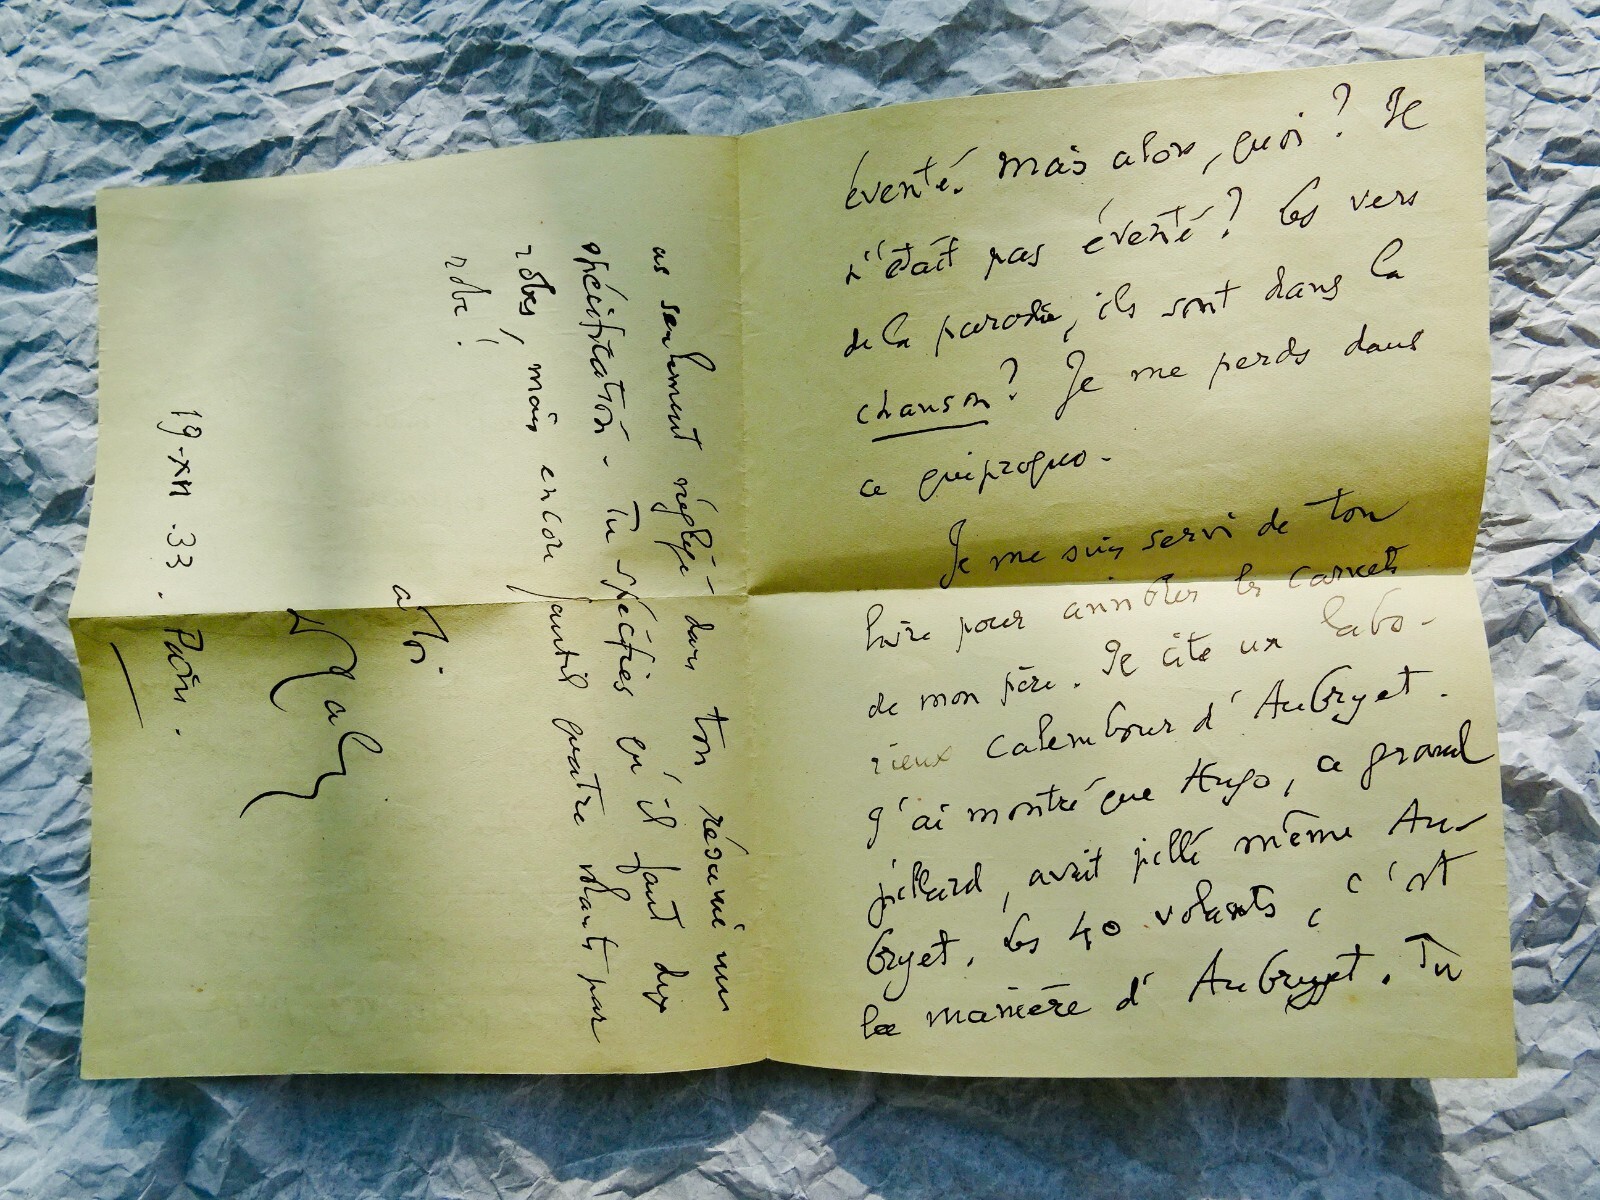 éventé. Mais alors, quoi ? Il
n'était pas éventé ? Les vers
de la parodie, ils sont dans la
chanson ? Je me perds dans
ce quiproquo.
Je me suis servi de ton
livre pour annoter les carnets
de mon père. Je cite un labo-
rieux calembour d'Aubryet.
J'ai montré que Hugo, ce grand
pillard, avait pillé même Au-
bryet. Les 40 volants, c'est
la manière d'Aubryet. Tu
as seulement négligé dans ton résumé une
spécification. Tu spécifies qu'il faut dix
robes, mais encore faut-il quatre volants par
robe !
à toi
19-XII.33. Paris.